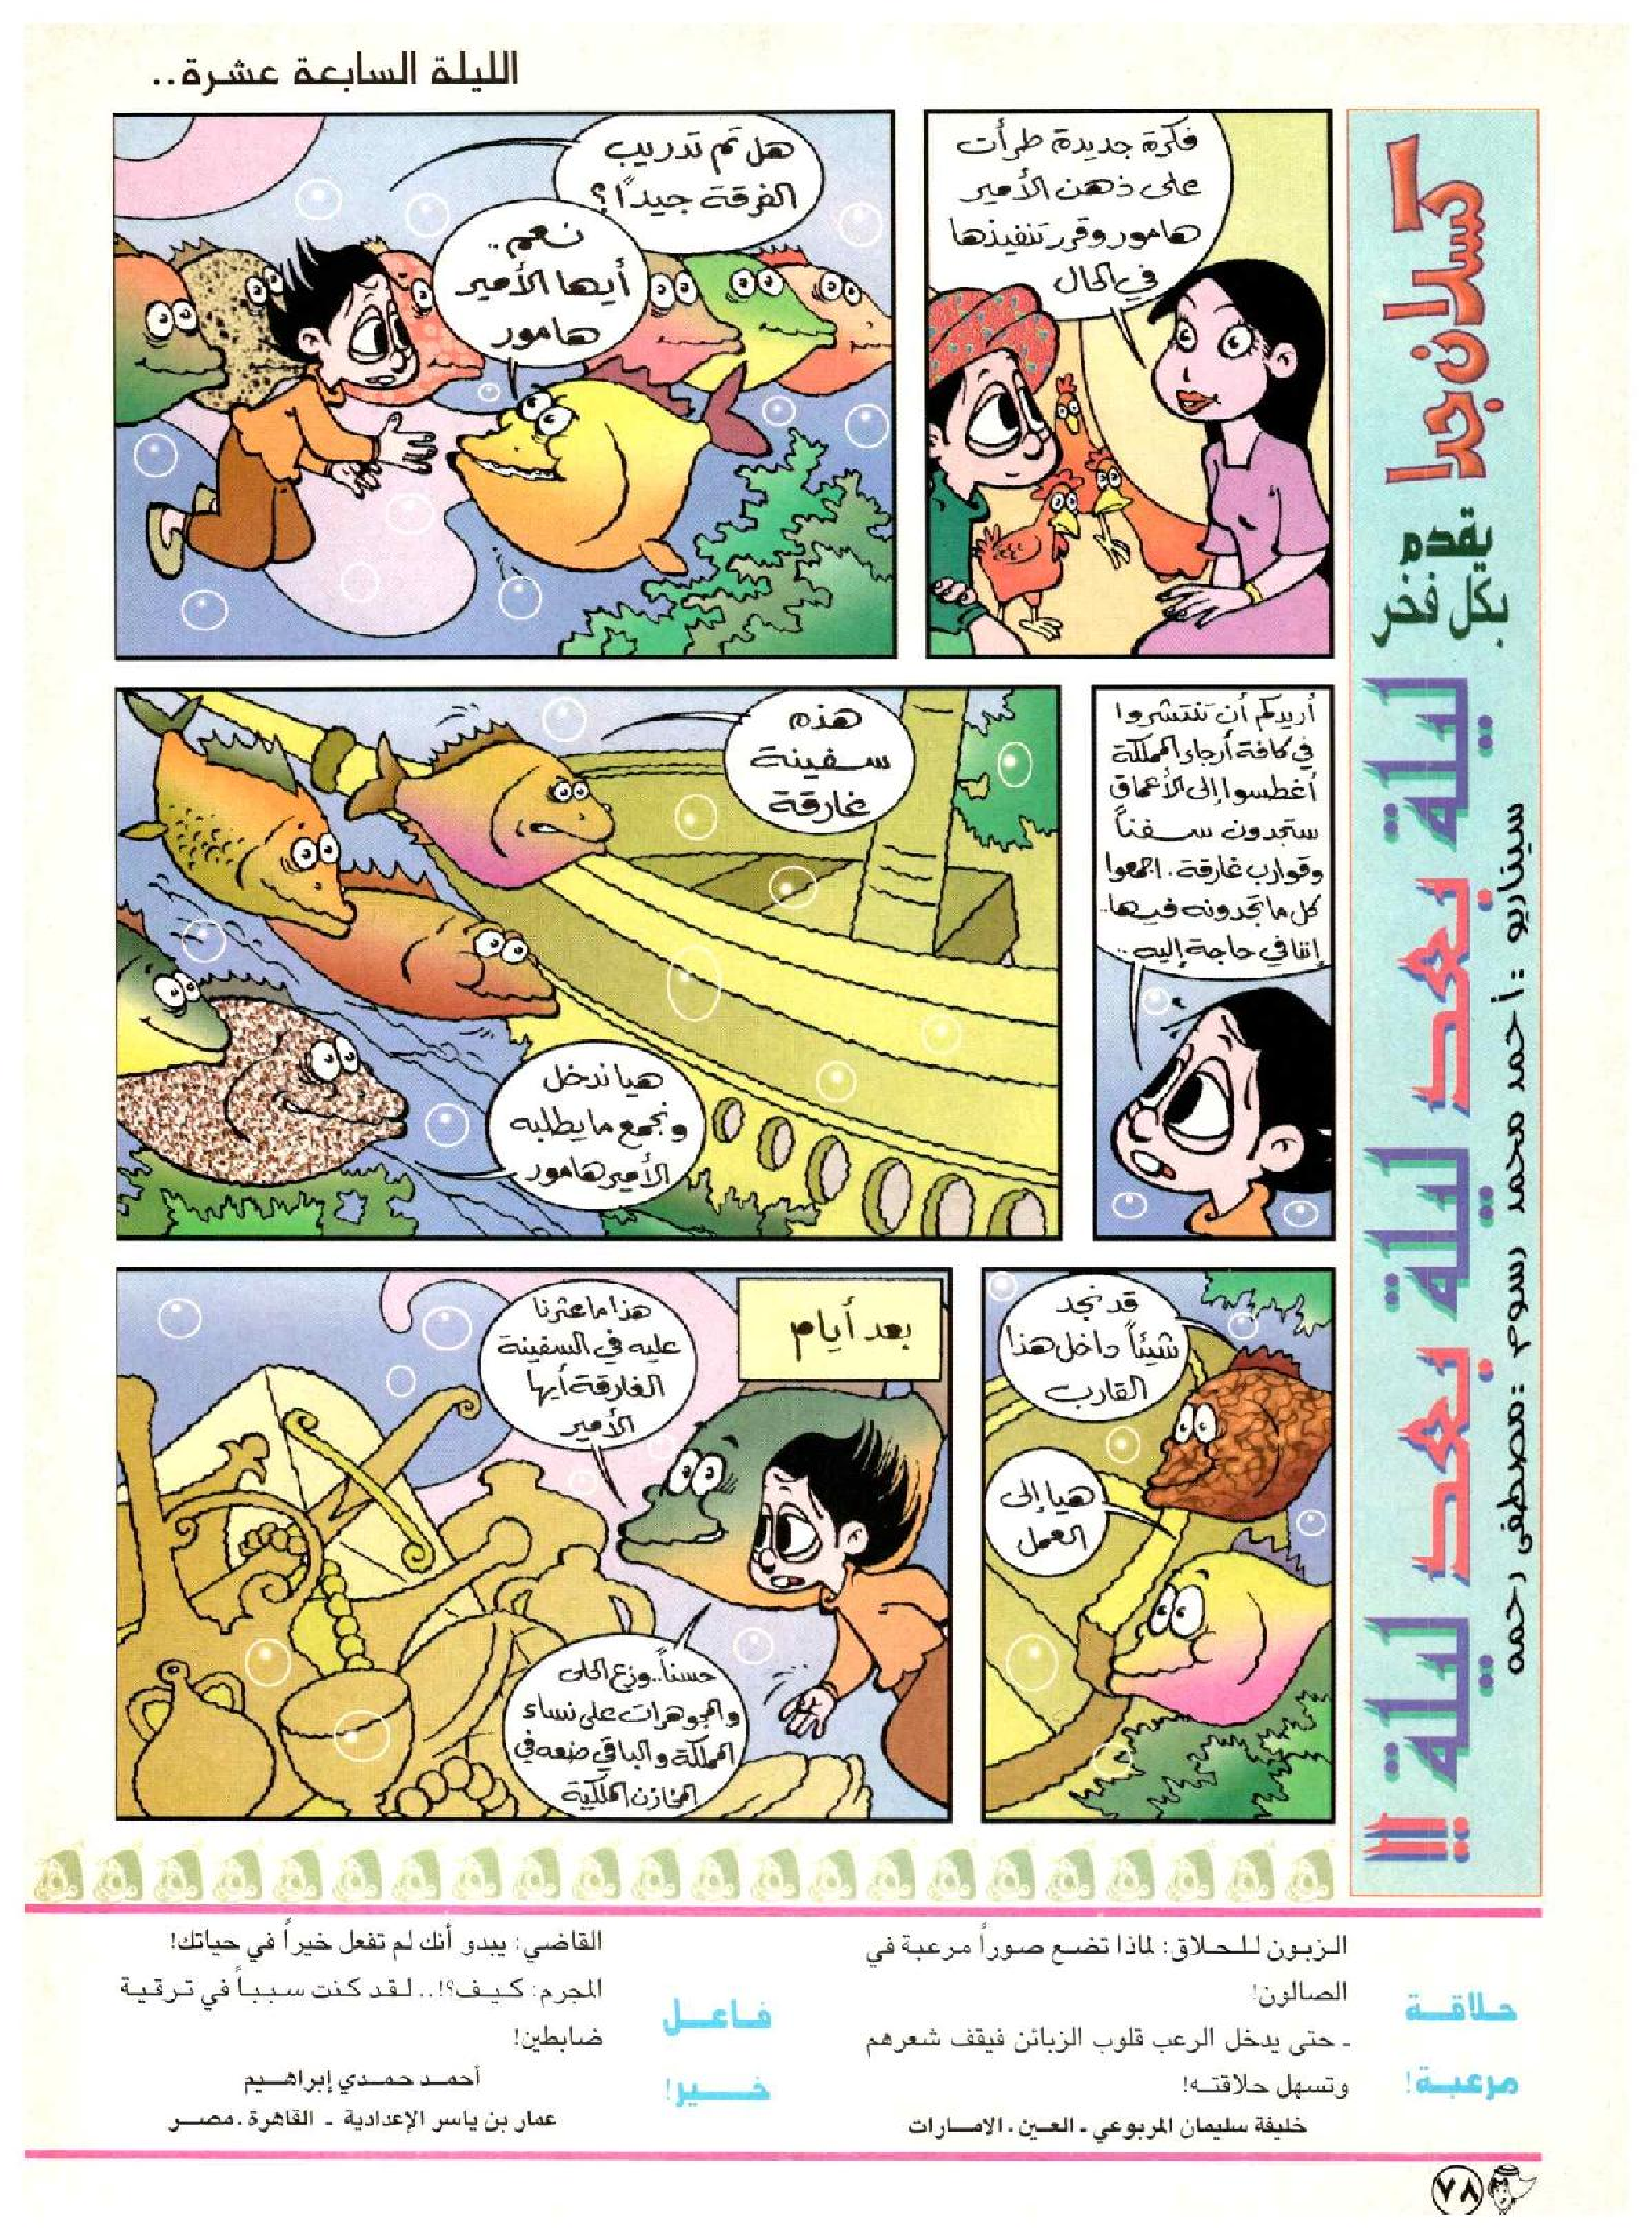 الليلة السابعة عشرة..
كسلان جدا
يقدم
بكل فخر
ليلة بعد ليلة بعد ليلة !!
سيناريو : أحمد محمد رسوم : مصطفى رحمه
فكرة جديدة طرأت
على ذهن الأمير
هامور وقرر تنفيذها
في الحال
هل تم تدريب
الفرقة جيداً؟
نعم ..
أيها الأمير
هامور
أريدكم أن تنتشروا
في كافة أرجاء المملكة
أغطسوا إلى الأعماق
ستجدون سفناً
وقوارب غارقة . اجمعوا
كل ما تجدونه فيها..
إننا في حاجة إليه ..
هذه
سفينة
غارقة
هيا ندخل
ونجمع ما يطلبه
الأمير هامور
قد نجد
شيئاً داخل هذا
القارب
هيا إلى
العمل
بعد أيام
هذا ما عثرنا
عليه في السفينة
الغارقة أيها
الأمير
حسناً.. وزع الحلى
والمجوهرات على نساء
المملكة والباقي ضعه في
المخازن الملكية
حلاقة
مرعبة!
الزبون للحلاق: لماذا تضع صوراً مرعبة في
الصالون!
ـ حتى يدخل الرعب قلوب الزبائن فيقف شعرهم
وتسهل حلاقته!
خليفة سليمان المربوعي ـ العين . الامارات
فاعل
خير!
القاضي: يبدو أنك لم تفعل خيراً في حياتك!
المجرم: كيف؟!.. لقد كنت سبباً في ترقية
ضابطين!
أحمد حمدي إبراهيم
عمار بن ياسر الإعدادية ـ القاهرة . مصر
٧٨